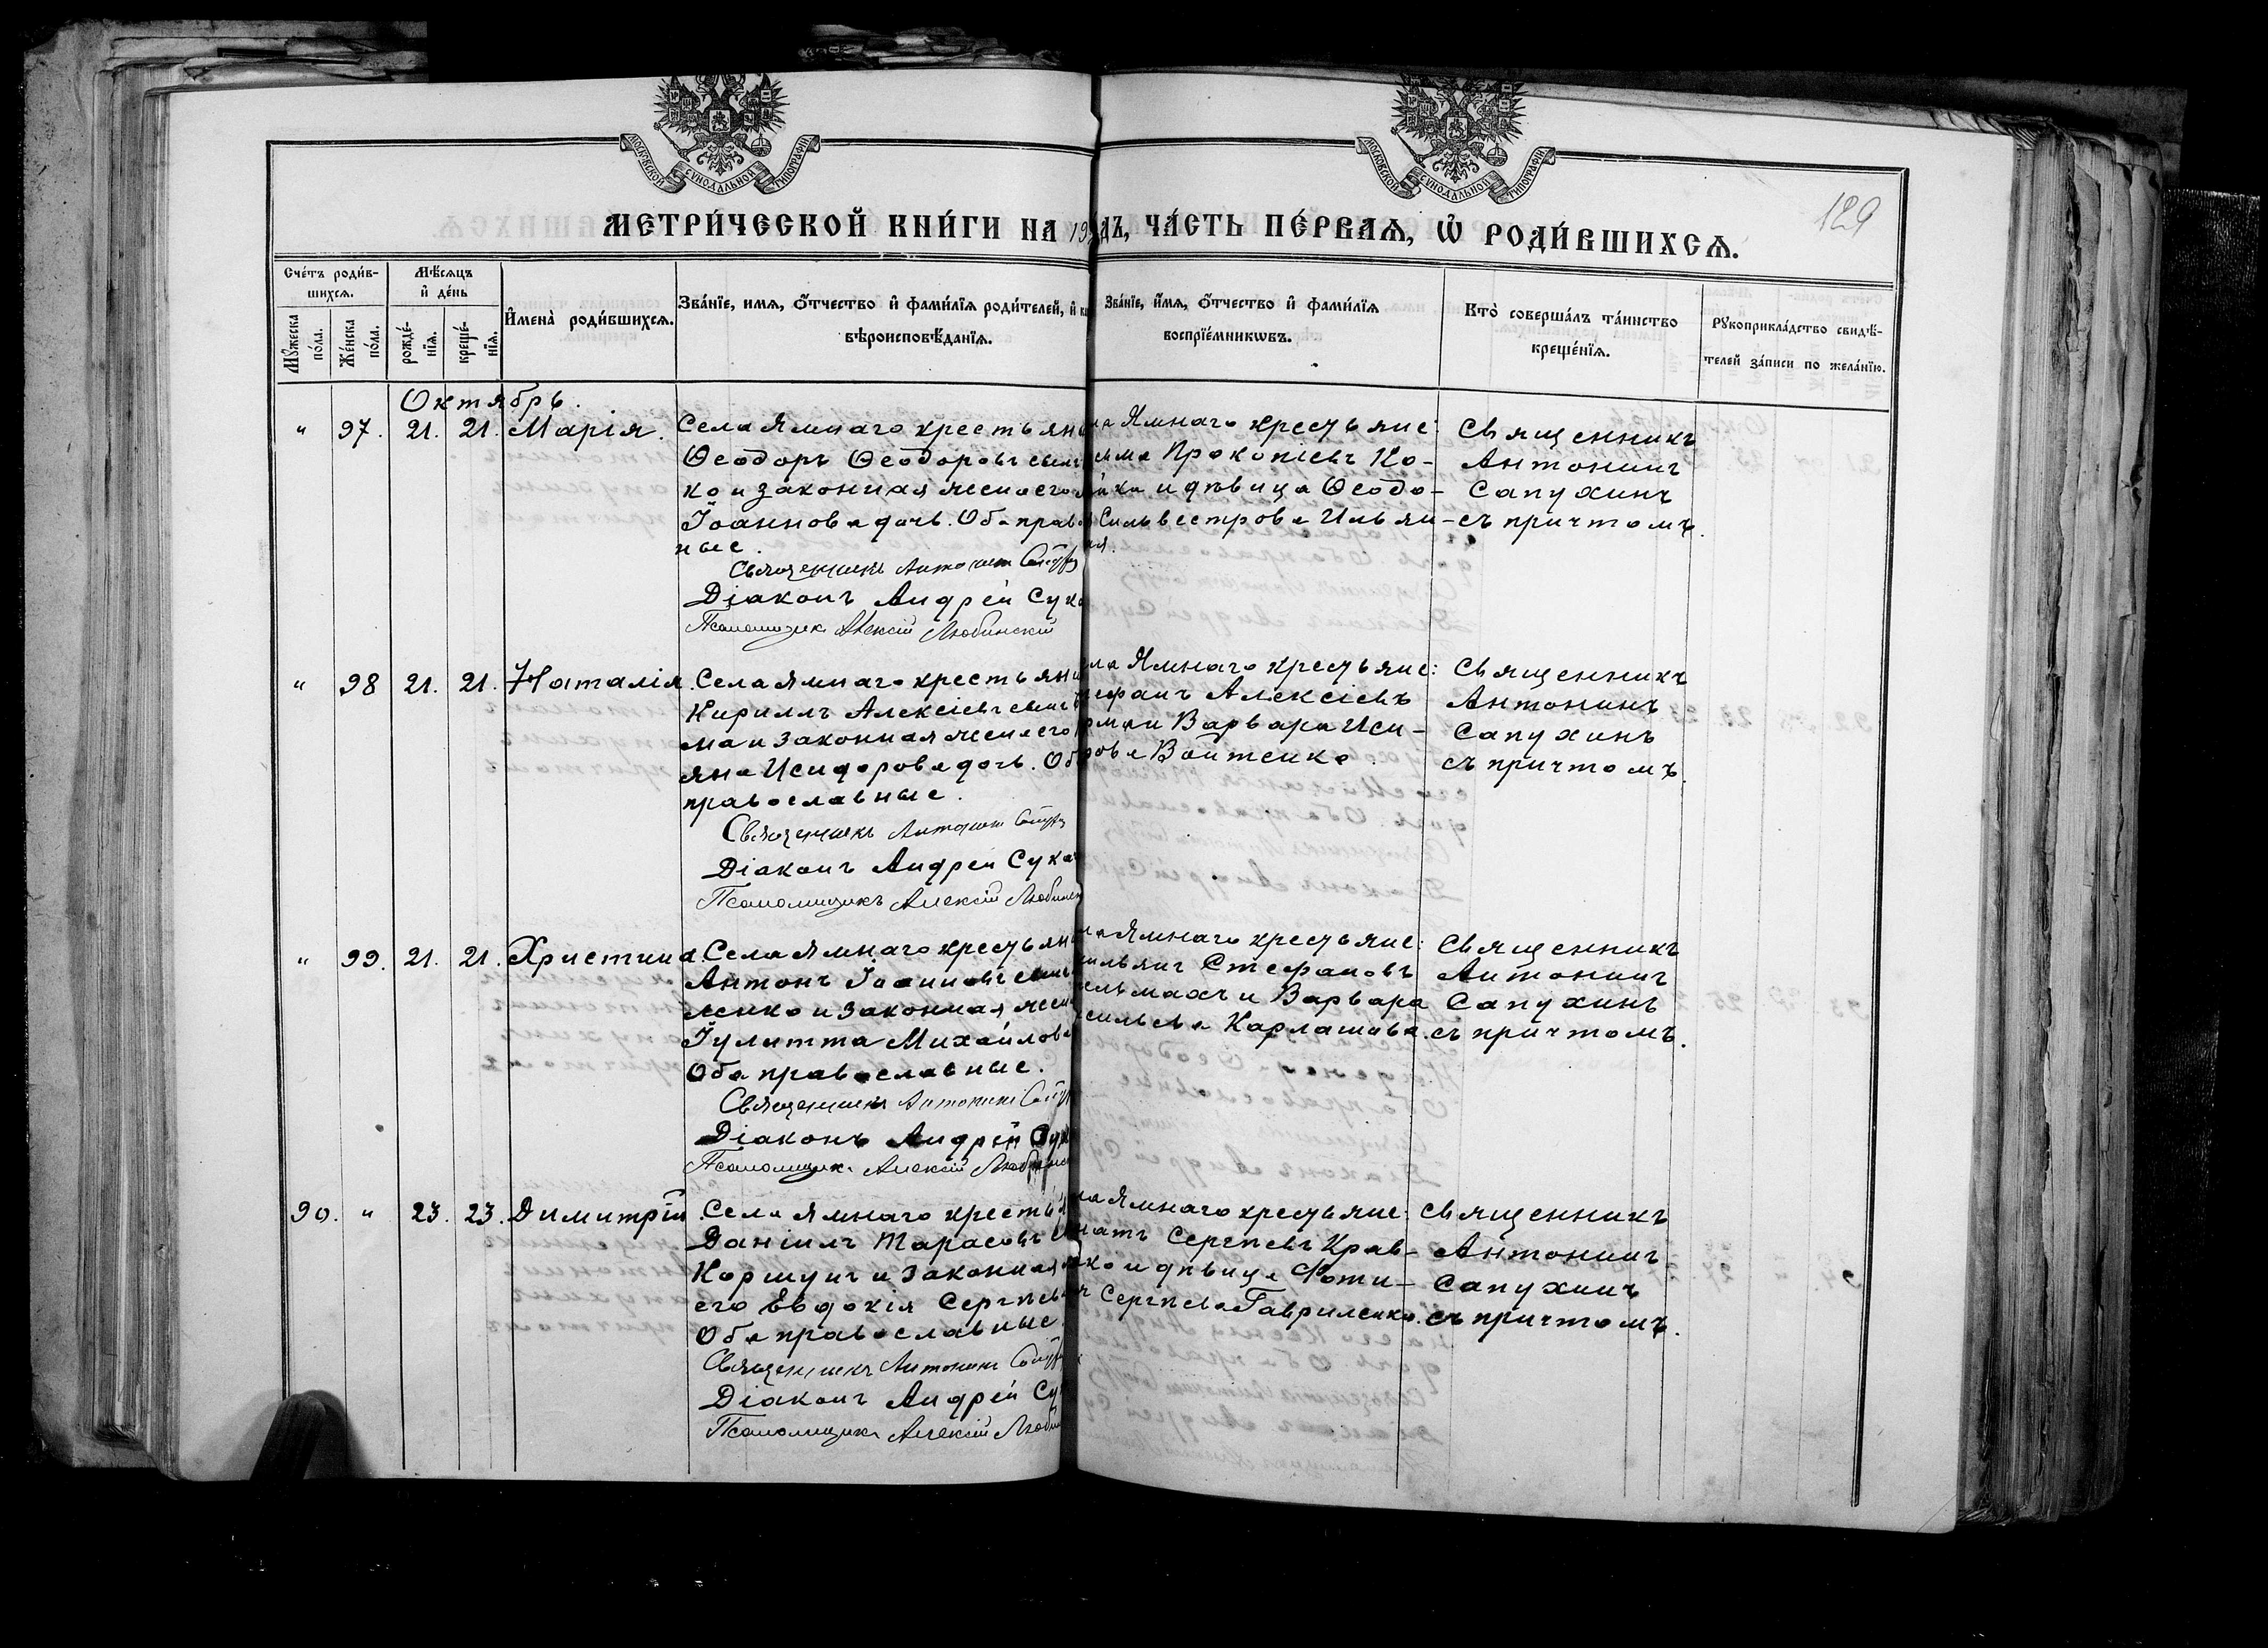 МОСКОВСКОЙ СѴНОДАЛЬНОЙ ТИПОГРАФІИ
МОСКОВСКОЙ СѴНОДАЛЬНОЙ ТИПОГРАФІИ
129
МЕТРИ́ЧЕСКОЙ КНИ́ГИ НА 19
ДЪ, ЧА́СТЬ ПЕ́РВАѦ, Ѽ РОДИ́ВШИХСѦ.
Сче́тъ роди́в-
шихсѧ.
Мѣ́сѧцъ
и҆ де́нь
Мꙋ́жеска по́ла.
Же́нска по́ла.
рожде́-
нїѧ.
креще́-
нїѧ.
И҆мена̀ роди́вшихсѧ.
Зва́нїе, имѧ, ѻ҆́тчество и҆ фами́лїѧ роди́телей, и҆
вѣроисповѣ́данїѧ.
Зва́нїе, и҆́мѧ, ѻ҆́тчество и҆ фами́лїѧ
воспрїе́мникѡвъ.
Кто̀ соверша́лъ та́инство
креще́нїѧ.
Рꙋкоприкла́дство свидѣ́-
телей за́писи по жела́нїю.
Октябрь.
" 97. 21. 21. Марія.
Села Ямнаго крестьян
Ѳеодоръ Ѳеодоровъ сынъ
ко и законная жена его
Іоаннова дочь. Оба право
ные.
Священникъ Антонинъ
Діаконъ Андрей Сук
Псаломщикъ Алексій Любинскій
Ямнаго крестьяне:
Прокопіевъ Ко-
и дѣвица Ѳеодо-
Сильвестрова Ильян-
ая.
Священникъ
Антонинъ
Сапухинъ
съ причтомъ.
" 98 21. 21. Наталія.
Села Ямнаго крестьян
Кириллъ Алексіевъ сынъ
ма и законная жена его
яна Исидорова дочь. Оба
православные.
Священникъ Антонинъ
Діаконъ Андрей Сука
Псаломщикъ Алексій Любинск
Ямнаго крестьяне:
Алексіевъ
и Варвара Иси-
дорова Войтенко.
Священникъ
Антонинъ
Сапухинъ
съ причтомъ.
" 99. 21. 21. Христина.
Села Ямнаго крестьян
Антонъ Іоанновъ сынъ
ленко и законная жена
Іулитта Михайлова
Оба православные.
Священникъ Антонинъ
Діаконъ Андрей Сук
Псаломщикъ Алексій Любинск
Ямнаго крестьяне:
Стефановъ
и Варвара
Карлашова.
Священникъ
Антонинъ
Сапухинъ
съ причтомъ.
90. " 23. 23. Димитрій
Села Ямнаго кресть
Даніилъ Тарасовъ
Коршунъ и законная
его Евдокія Сергѣев
Оба православные.
Священникъ Антонинъ
Діаконъ Андрей Сук
Псаломщикъ Алексій Любин
Ямнаго крестьяне:
Сергѣевъ Крав-
и дѣвица Фоти-
Сергѣева Гавриленко.
Священникъ
Антонинъ
Сапухинъ
съ причтомъ.